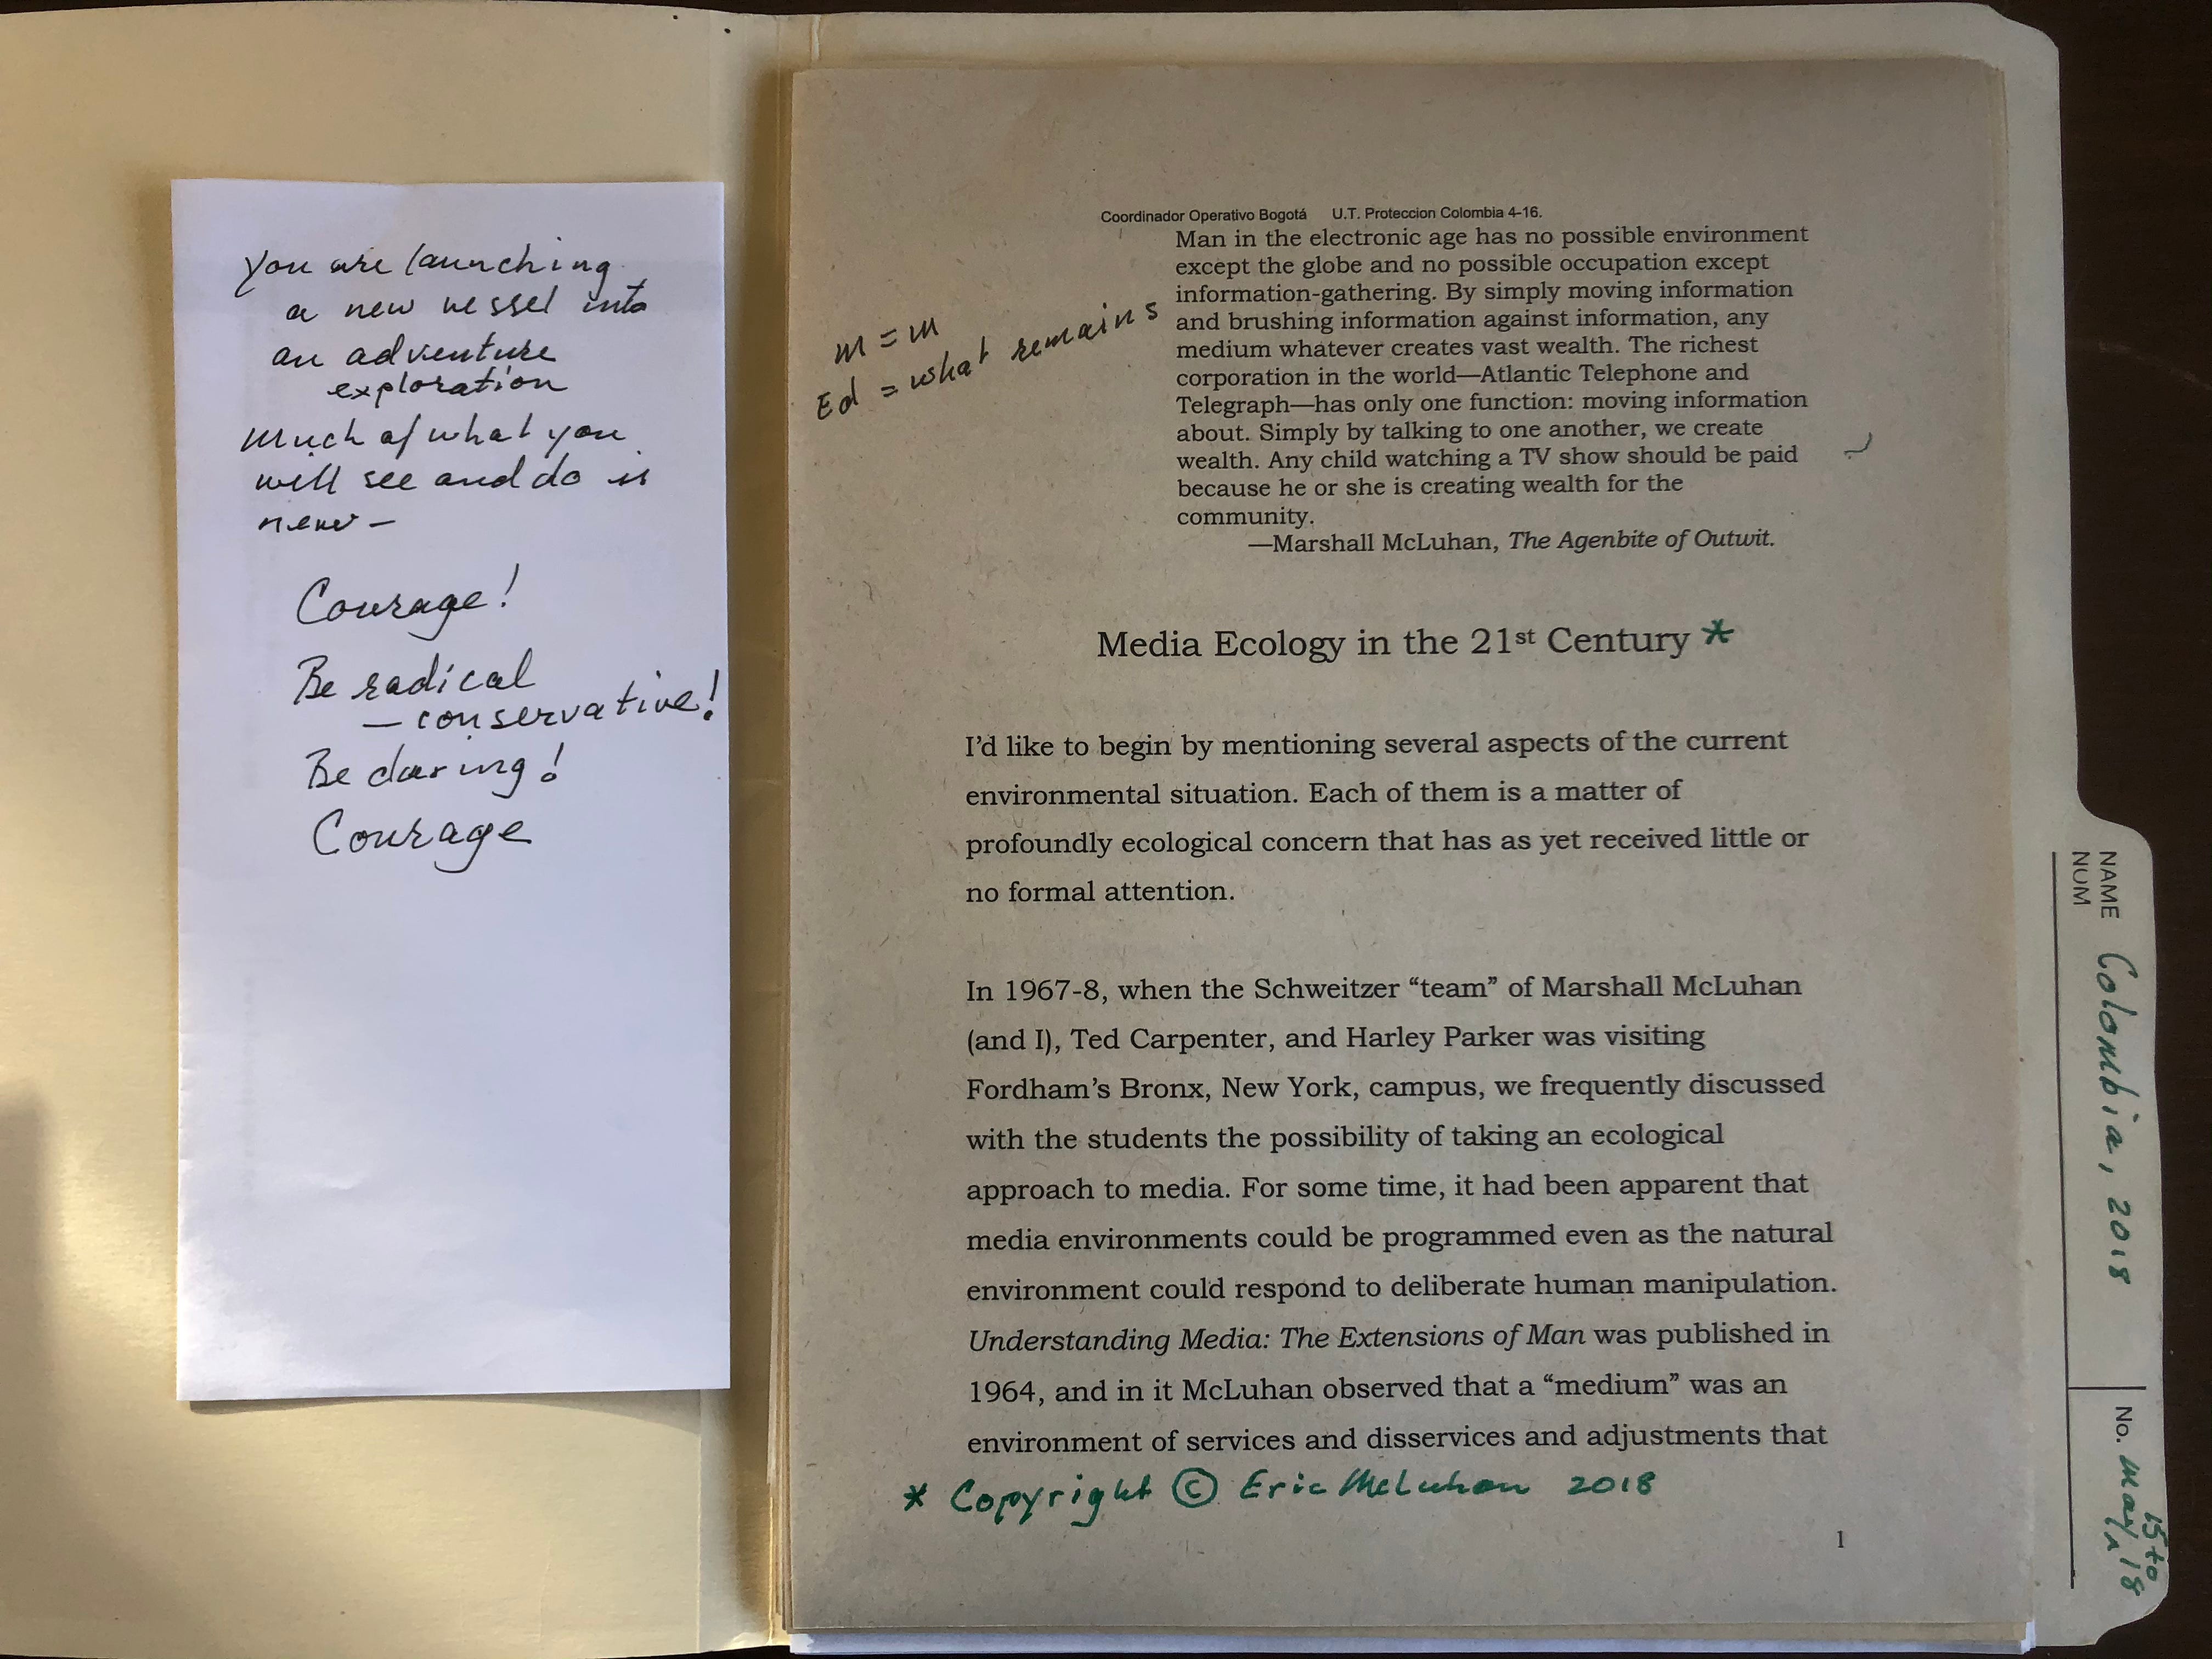 you are launching
a new vessel into
an adventure
exploration
much of what you
will see and do is
new –
Courage!
Be radical
– conservative!
Be daring!
Courage
Coordinador Operativo Bogotá U.T. Proteccion Colombia 4-16.
Man in the electronic age has no possible environment
except the globe and no possible occupation except
information-gathering. By simply moving information
and brushing information against information, any
medium whatever creates vast wealth. The richest
corporation in the world—Atlantic Telephone and
Telegraph—has only one function: moving information
about. Simply by talking to one another, we create
wealth. Any child watching a TV show should be paid
because he or she is creating wealth for the
community.
—Marshall McLuhan, The Agenbite of Outwit.
m = m
Ed = what remains
Media Ecology in the 21st Century *
I’d like to begin by mentioning several aspects of the current
environmental situation. Each of them is a matter of
profoundly ecological concern that has as yet received little or
no formal attention.
In 1967-8, when the Schweitzer “team” of Marshall McLuhan
(and I), Ted Carpenter, and Harley Parker was visiting
Fordham’s Bronx, New York, campus, we frequently discussed
with the students the possibility of taking an ecological
approach to media. For some time, it had been apparent that
media environments could be programmed even as the natural
environment could respond to deliberate human manipulation.
Understanding Media: The Extensions of Man was published in
1964, and in it McLuhan observed that a “medium” was an
environment of services and disservices and adjustments that
* Copyright © Eric McLuhan 2018
1
NAME Colombia, 2018
NUM
No. may 15 to 18